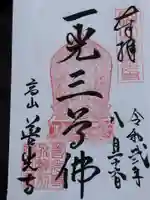 奉拝
令和弐年
八月十六日
一光三尊佛
高山 善光寺